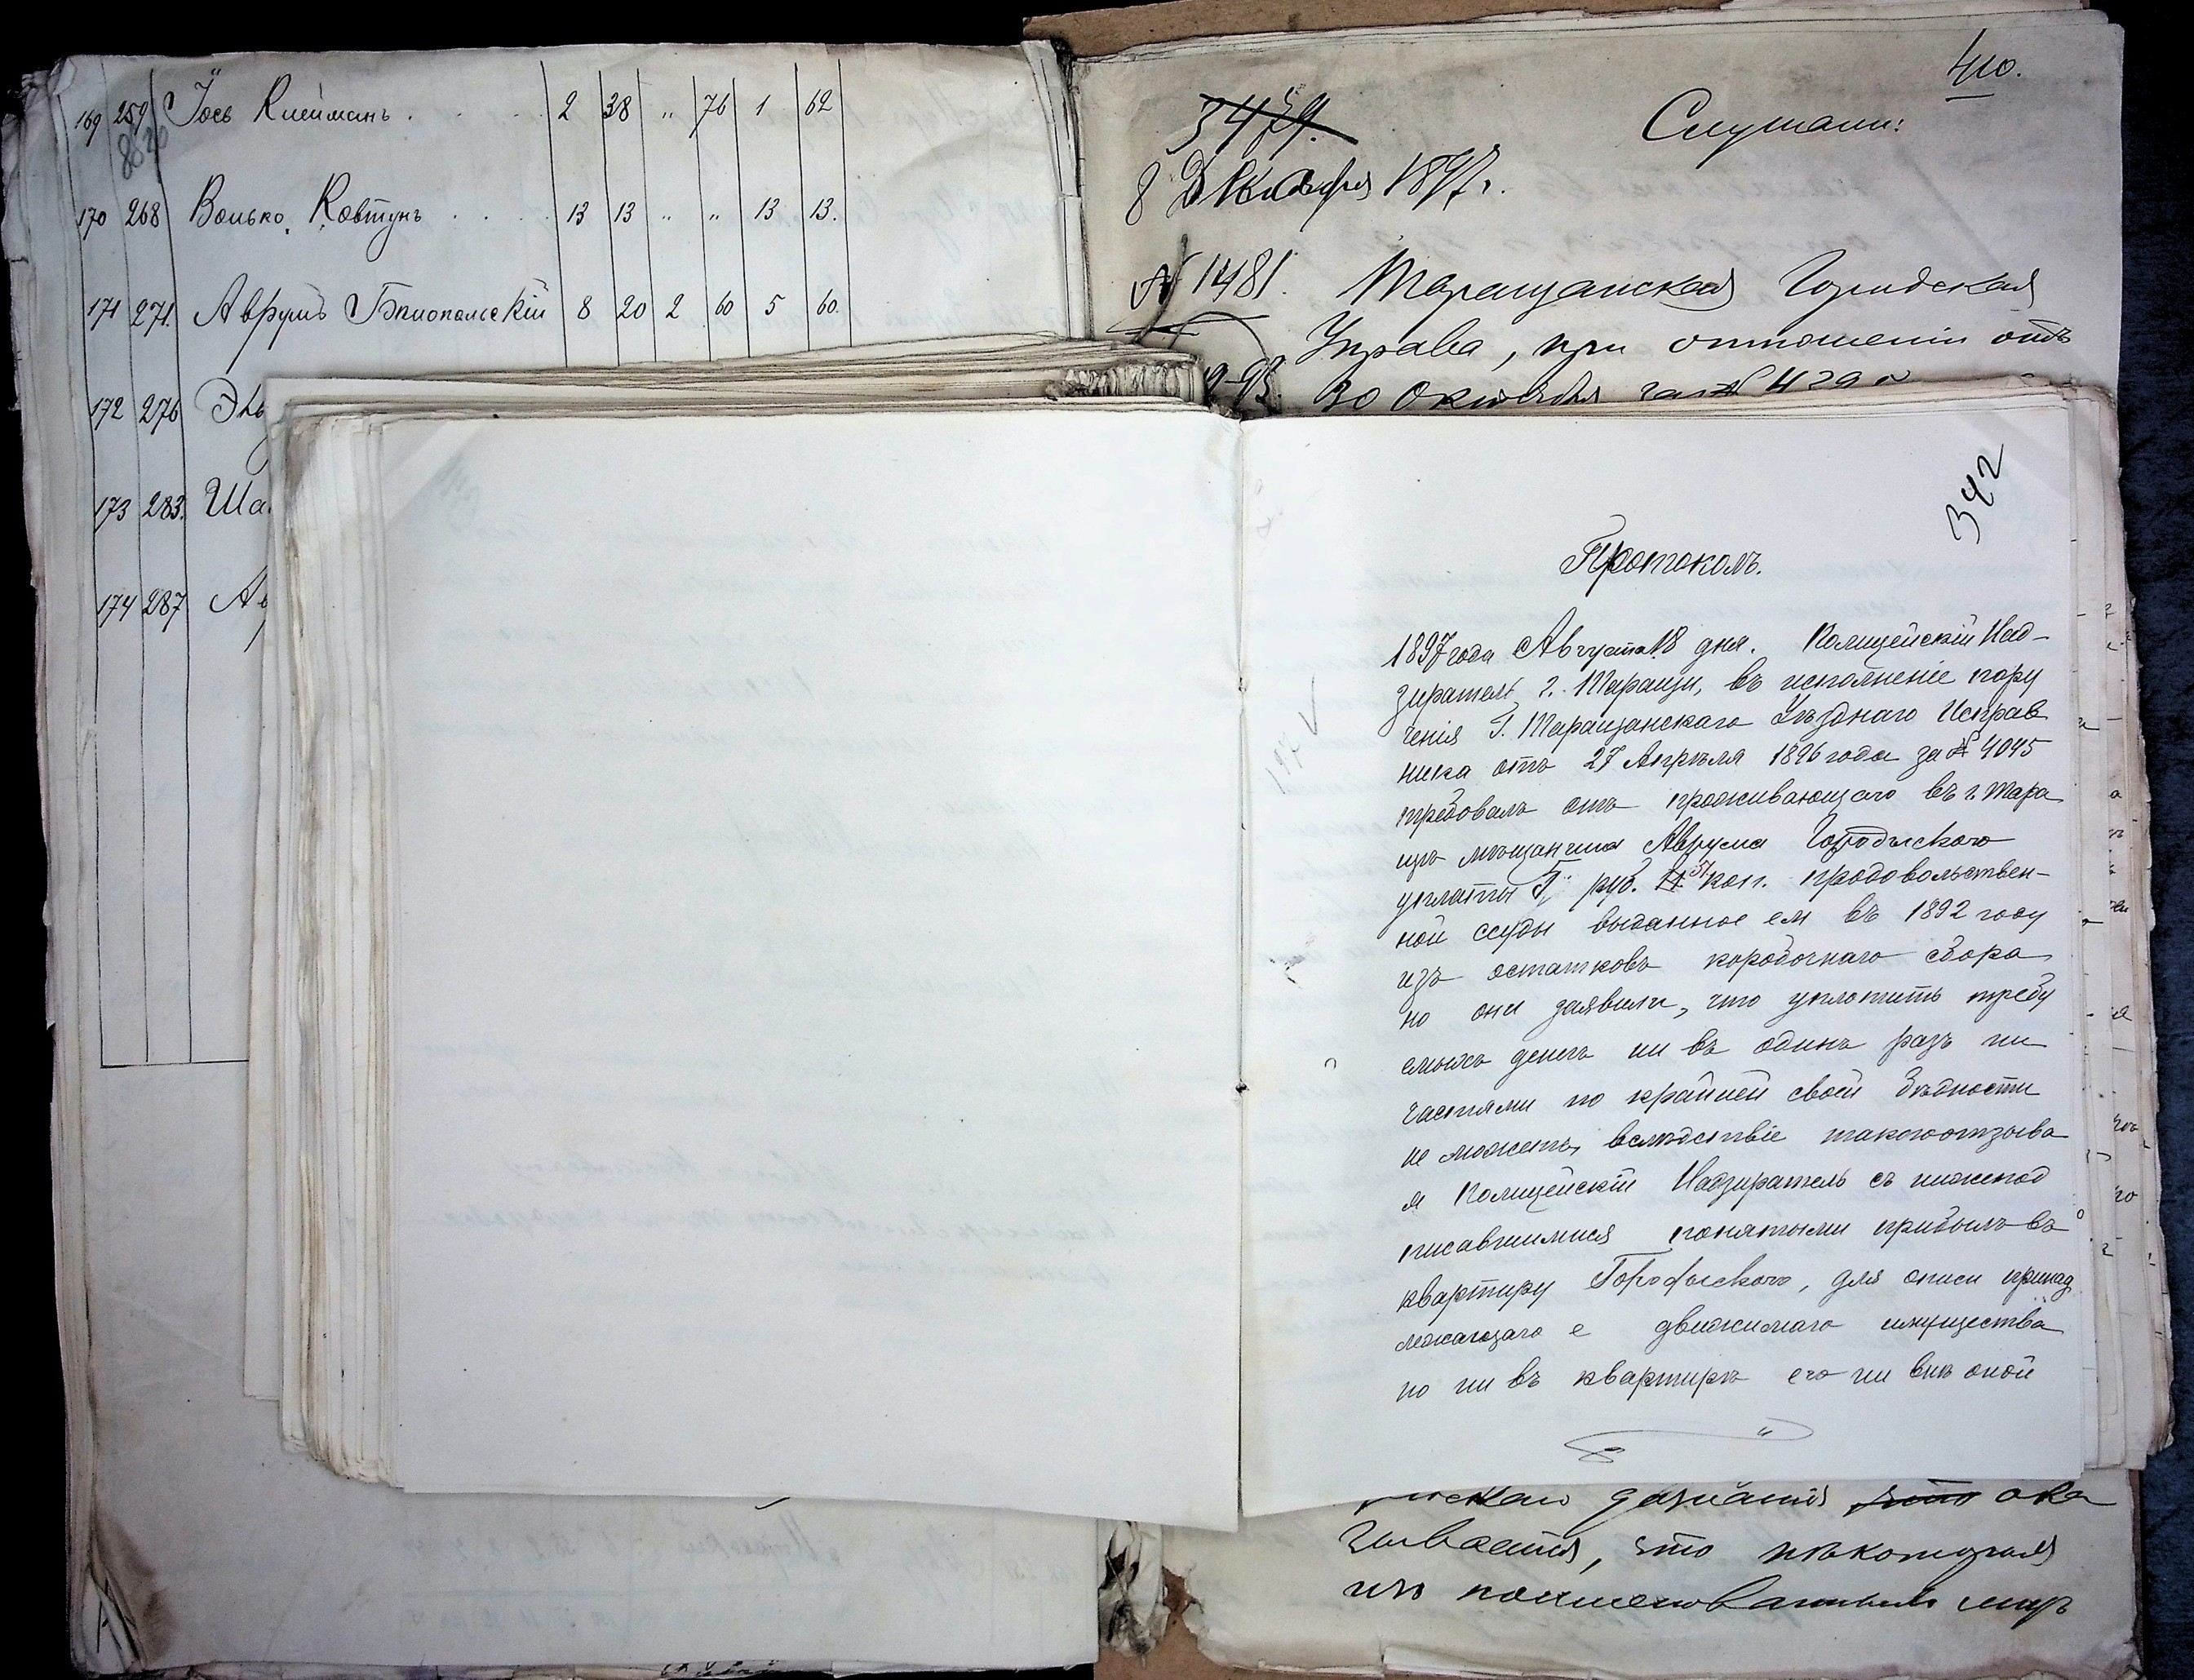 169 259 Іось Клейманъ . . . 2 38 " 76 1 62
170 268 Волько Ковтунъ . . . 13 13 " " 13 13.
171 271. Аврумъ Бялопольскій 8 20 2 60 5 60.
172 276
173 283. Ша
174 287
410.
3479.
Слушали:
8 Декабря 1897 г.
№ 1481. Таращанская Городская
Управа, при отношеніи отъ
30 Октября за №
342
Протоколъ.
1897 года Августа 18 дня. Полицейскій Над-
зиратель г. Таращи, въ исполненіе пору
ченія Г. Таращанскаго Уѣзднаго Исправ
ника отъ 27 Апрѣля 1896 года за № 4045
требовалъ отъ проживающаго въ г. Тара
щѣ мѣщанина Аврума Городыского
уплаты 5 руб. 51 коп. продовольствен-
ной ссуды выданное ем въ 1892 году
изъ остатковъ коробочнаго сбора
но они заявили, что уплотить требу
емыхъ денегъ ни въ одинъ разъ ни
частями по крайней своей бѣдности
не можетъ, вслѣдствіе такого отзыва
я Полицейскій Надзиратель съ нижепод
писавшимися понятыми прибылъ въ
квартиру Городыского, для описи принад
лежащаго е движимаго имущества
но ни въ квартирѣ его ни внѣ оной
дознанія что ока
зывается, что нѣкоторыя
изъ поименованныхъ лицъ